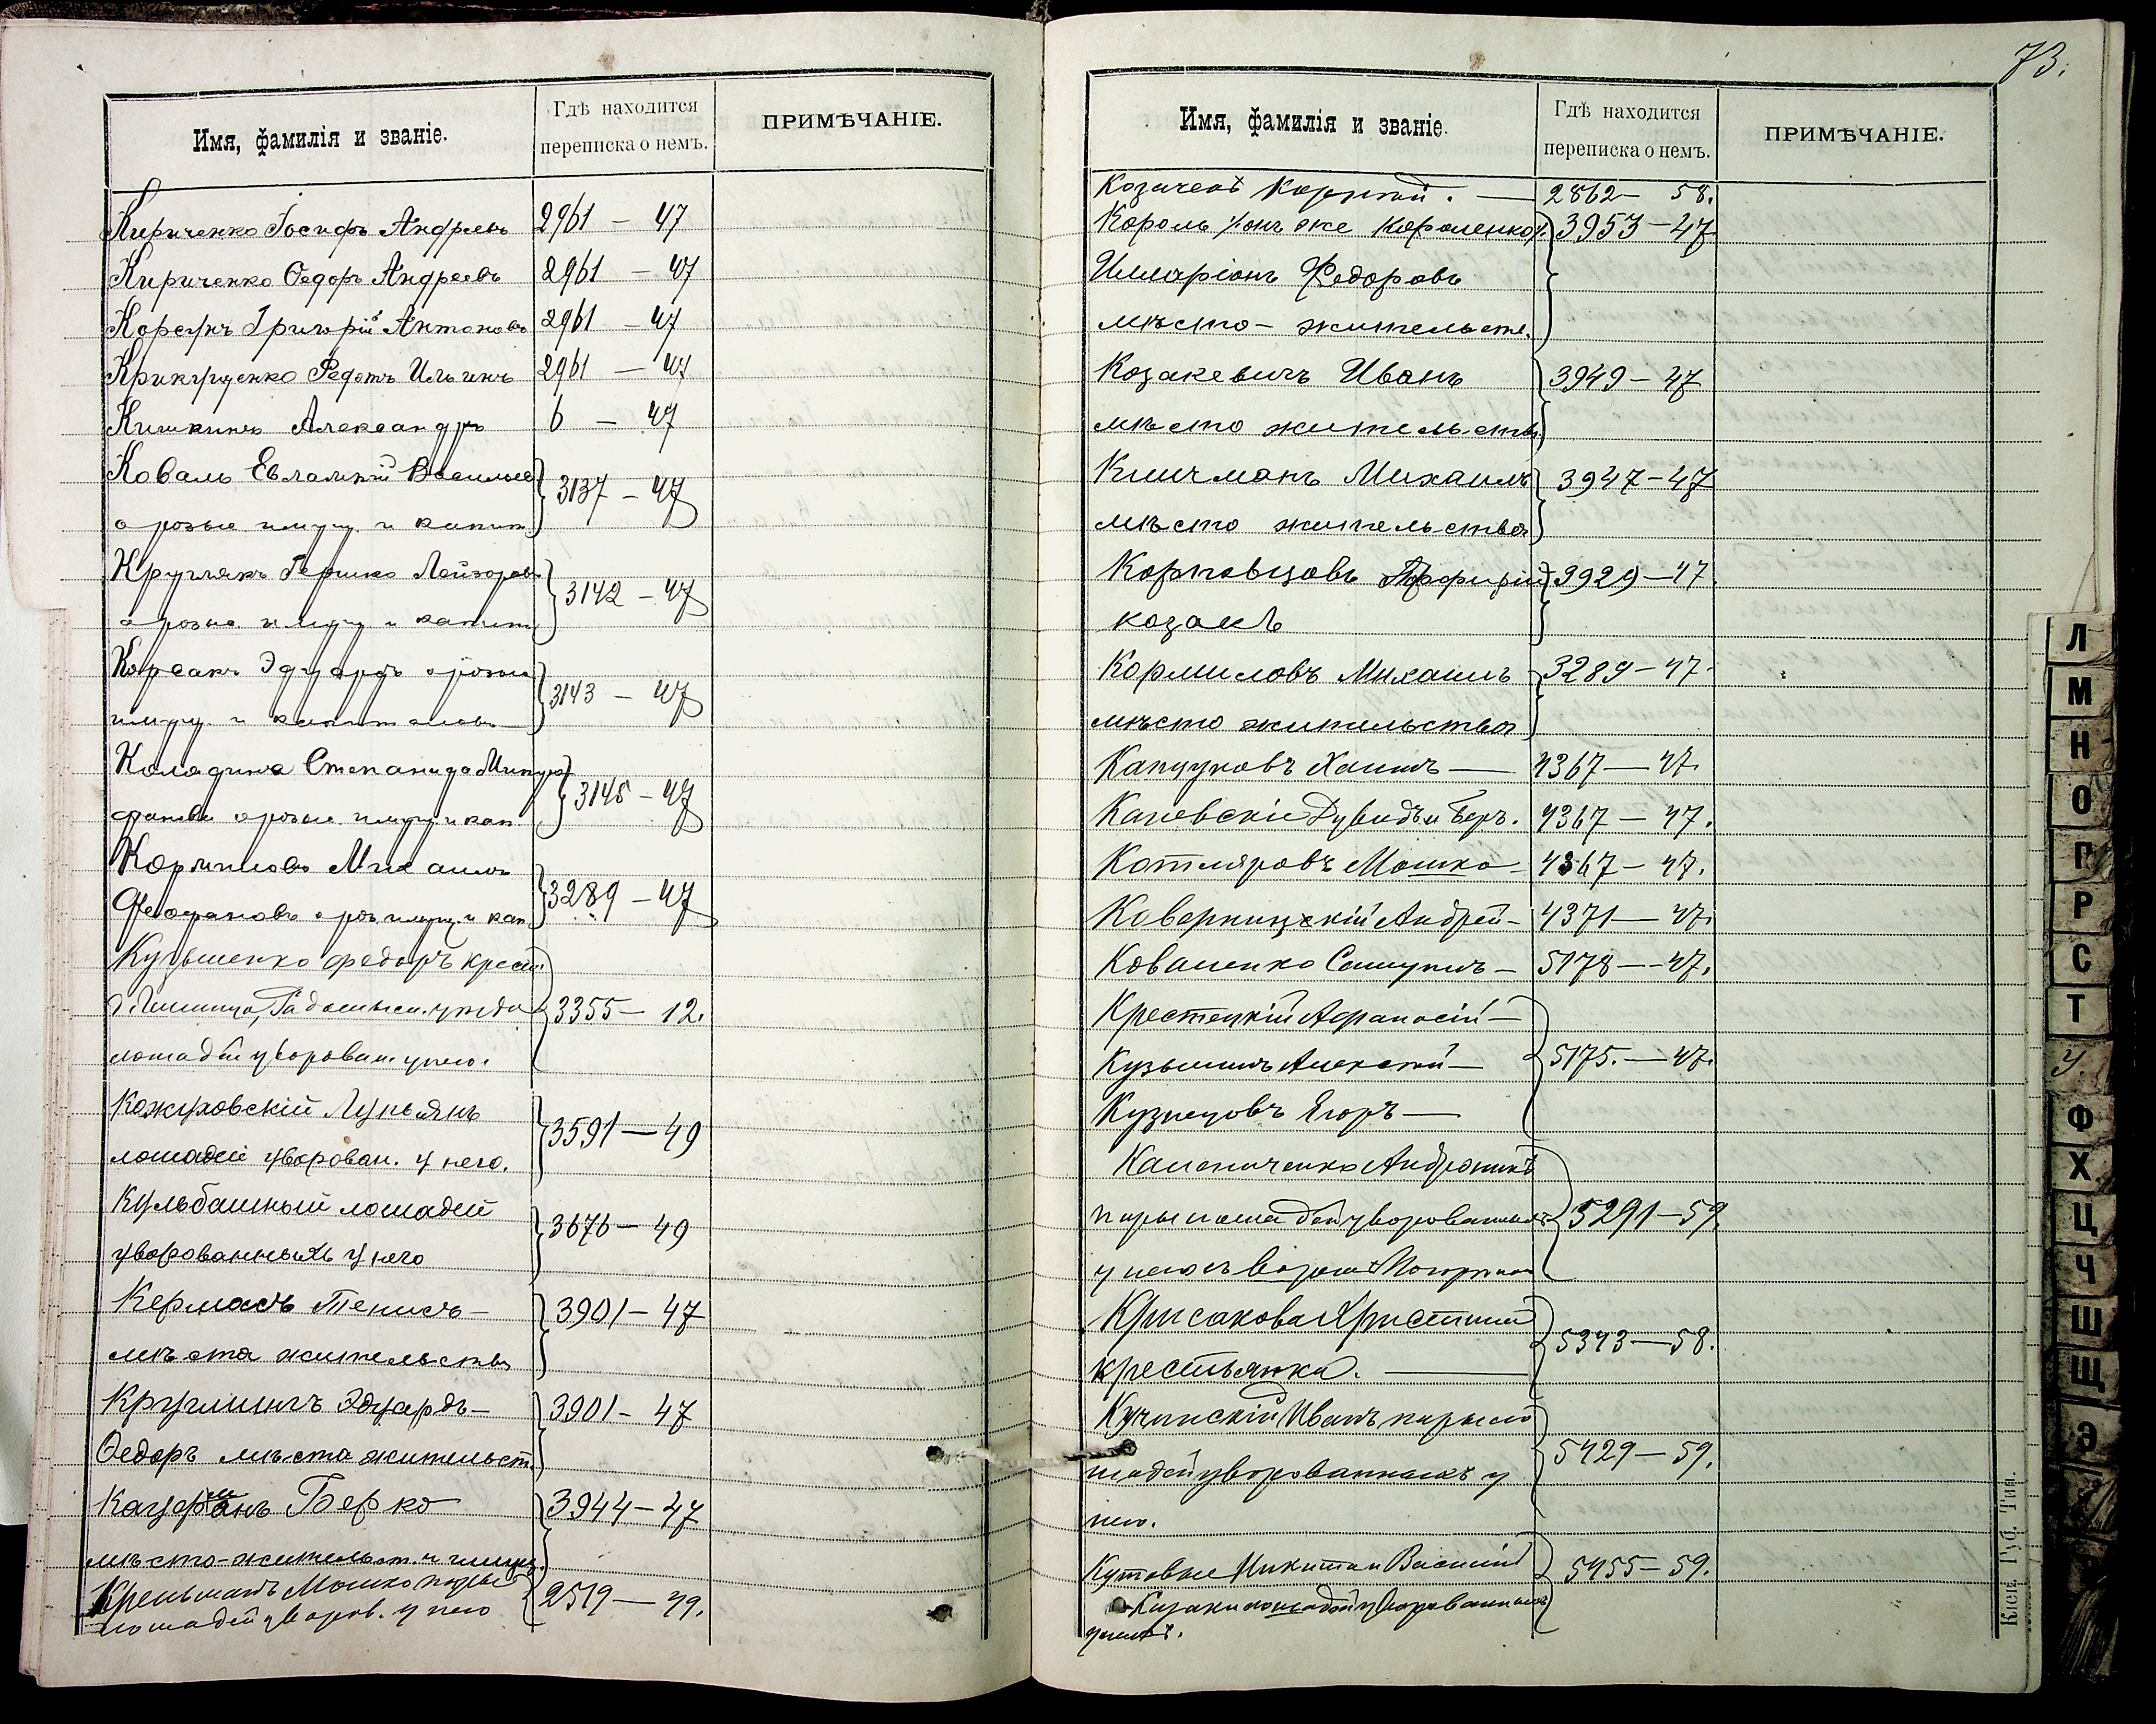 Имя, фамилія и званіе.
Гдѣ находится
переписка о немъ.
ПРИМѢЧАНІЕ.
Кириченко Іосифъ Андреевъ 2961 — 47
Кириченко Ѳедоръ Андреевъ 2961 — 47
Корсунъ Григорій Антоновъ 2961 — 47
Федотъ Ильинъ 2961 — 47
Кишкинъ Александръ 6 — 47
Коваль Евлампій Васильев 3137 — 47
о розыс имущ. и капит
Круглякъ Гершко Лейзоровъ 3142 — 47
о розыс имущ и капит
Корсакъ Эдуардъ о розыс 3143 — 47
имущ. и капиталовъ
Колодина Степанида 3145 — 47
о розыс. имущ и кап
Михаилъ 3289 — 47
Феофановъ о роз имущ. и кап
Кузьменко федоръ крест
Радомысл. уѣзда 3355 — 12.
лошадей уворован. у него.
Кожуховскій Лукьянъ 3591 — 49
лошадей уворован. у него.
Кульбашный лошадей 3676 — 49
уворованныхъ у него
Кермасъ Тенисъ — 3901 — 47
мѣста жительства
Эдуардъ — 3901 — 47
Ѳедоръ мѣста жительст.
Кауфманъ Берко 3944 — 47
мѣсто-жительст. и
Мошко пары 2519 — 49.
лошадей уворов. у него
73.
Имя, фамилія и званіе.
Гдѣ находится
переписка о немъ.
ПРИМѢЧАНІЕ.
2862 — 58.
Король /онъ же Короленко/. 3953 — 47
Илларіонъ Федоровъ
мѣсто — жительств.
Козакевичъ Иванъ 3949 — 47
мѣсто жительств
Михаилъ 3947 — 47
мѣсто жительства
3929 — 47.
козакъ
Кормиловъ Михаилъ 3289 — 47.
мѣсто жительства
Капцуновъ Хаимъ — 4367 — 47.
Каневскіе Дувидъ и Беръ. 4367 — 47.
Котляровъ Мошко 4367 — 47.
Андрей — 4371 — 47.
Коваленко Самуилъ — 5178 — 47.
Крестецкій Афанасій —
Кузьминъ Алексѣй — 5175. — 47.
Кузнецовъ Егоръ —
Андроникъ
пары лошадей уворованныхъ 5291 — 59.
у него
Крисакова Христина 5343 — 58.
крестьянка. —
Кучинскій Иванъ пары ло
шадей уворованныхъ у 5429 — 59.
него.
Кутовые Никита и Василій 5455 — 59.
Козаки лошадей уворованныхъ
у нихъ.
Кіев. Губ. Тип.
Л
М
Н
О
П
Р
С
Т
У.
Ф
Х
Ц
Ч
Ш
Щ
Э